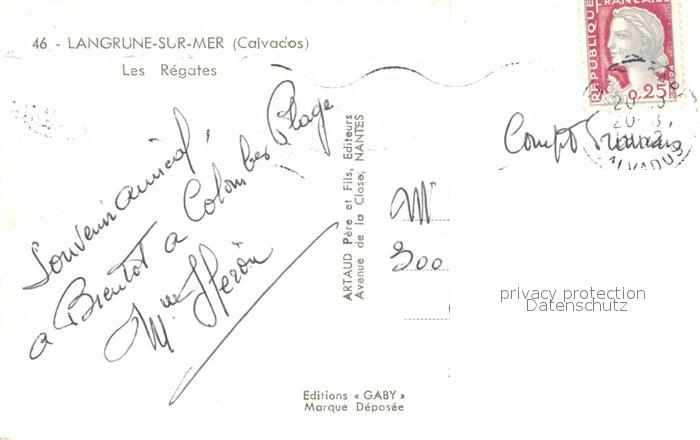 46 - LANGRUNE-SUR-MER (Calvados)
Les Régates
Souvenir amical,
a Bientot a Colombes Plage
Mme Heron
ARTAUD Père et Fils, Editeurs
Avenue de la Close, NANTES
Editions « GABY »
Marque Déposée
REPUBLIQUE FRANCAISE
0,25
20
CALVADOS
M
300
privacy protection
Datenschutz